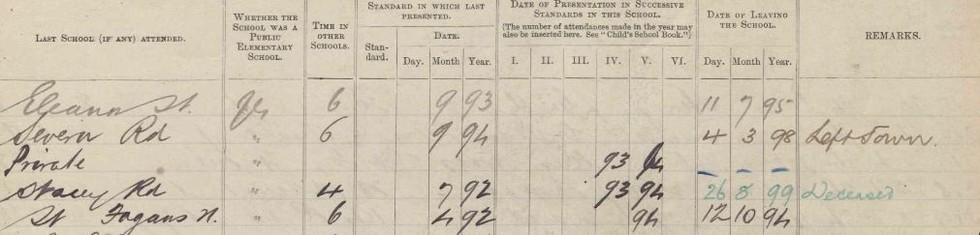 LAST SCHOOL (IF ANY) ATTENDED.
WHETHER THE SCHOOL WAS A PUBLIC ELEMENTARY SCHOOL.
TIME IN OTHER SCHOOLS.
STANDARD IN WHICH LAST PRESENTED.
Stan-dard.
DATE.
Day. Month Year.
DATE OF PRESENTATION IN SUCCESSIVE STANDARDS IN THIS SCHOOL.
(The number of attendances made in the year may also be inserted here. See "Child's School Book.")
I. II. III. IV. V. VI.
DATE OF LEAVING THE SCHOOL.
Day. Month Year.
REMARKS.
Eleanor St. Yes 6 9 93 11 7 95
Severn Rd " 6 9 94 4 3 98 Left Town.
Private " 93 94 – – –
Stacey Rd " 4 7 92 93 94 26 8 99 Deceased
St Fagans N. " 6 4 92 94 12 10 94